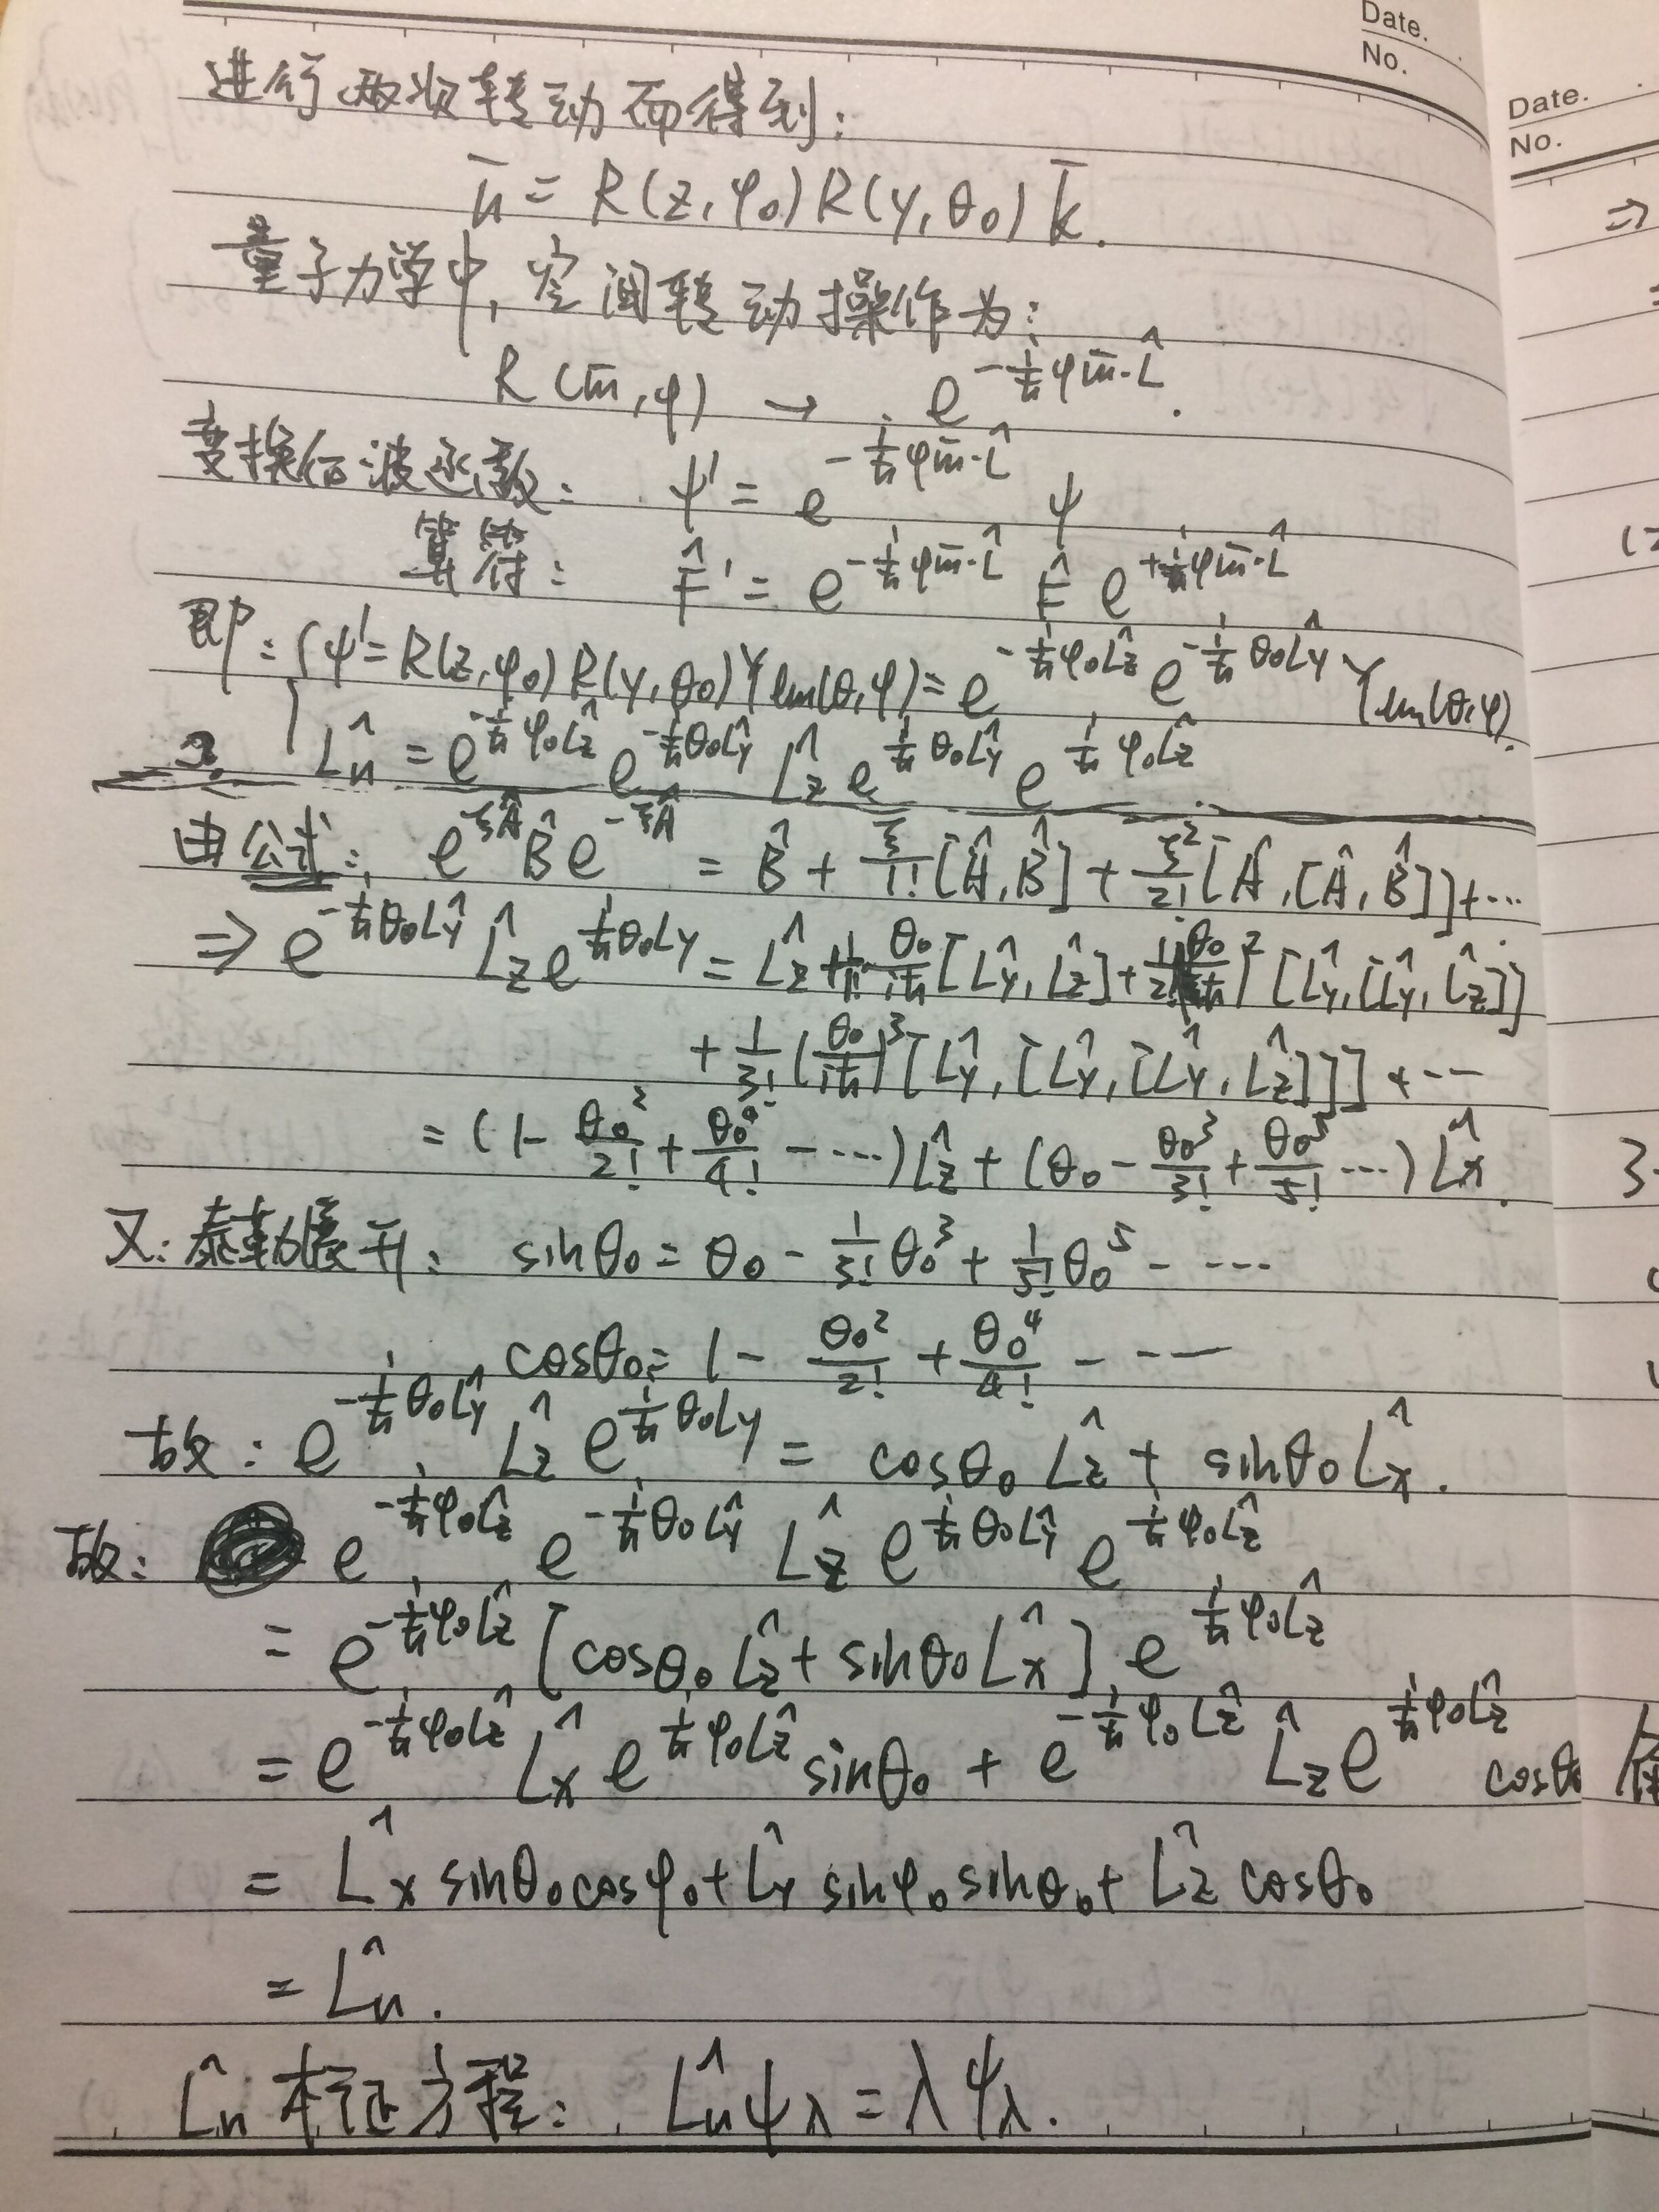 Date.
No.
进行两次转动而得到:
n̄ = R(z,φ₀)R(y,θ₀) k̄.
量子力学中,空间转动操作为:
R(m̄,φ) → e^{-i/ħ φm̄·L̂}.
变换后波函数: ψ' = e^{-i/ħ φm̄·L̂} ψ
算符: F̂' = e^{-i/ħ φm̄·L̂} F̂ e^{+i/ħ φm̄·L̂}
即: { ψ' = R(z,φ₀)R(y,θ₀)Yₗₘ(θ,φ) = e^{-i/ħ φ₀L̂z} e^{-i/ħ θ₀L̂y} Yₗₘ(θ,φ).
L̂n = e^{-i/ħ φ₀L̂z} e^{-i/ħ θ₀L̂y} L̂z e^{i/ħ θ₀L̂y} e^{i/ħ φ₀L̂z}
由公式: e^{ξÂ} B̂ e^{-ξÂ} = B̂ + ξ/1! [Â,B̂] + ξ²/2! [Â,[Â,B̂]] + ···
⇒ e^{-i/ħ θ₀L̂y} L̂z e^{i/ħ θ₀Ly} = L̂z + 1/1! θ₀/iħ [L̂y,L̂z] + 1/2! (θ₀/iħ)² [L̂y,[L̂y,L̂z]]
+ 1/3! (θ₀/iħ)³ [L̂y,[L̂y,[L̂y,L̂z]]] + ···
= (1 - θ₀²/2! + θ₀⁴/4! - ···) L̂z + (θ₀ - θ₀³/3! + θ₀⁵/5! ···) L̂x.
又: 泰勒展开: sinθ₀ = θ₀ - 1/3! θ₀³ + 1/5! θ₀⁵ - ···
cosθ₀ = 1 - θ₀²/2! + θ₀⁴/4! - ···
故: e^{-i/ħ θ₀L̂y} L̂z e^{i/ħ θ₀Ly} = cosθ₀ L̂z + sinθ₀ L̂x.
故: e^{-i/ħ φ₀L̂z} e^{-i/ħ θ₀L̂y} L̂z e^{i/ħ θ₀L̂y} e^{i/ħ φ₀L̂z}
= e^{-i/ħ φ₀L̂z} [cosθ₀ L̂z + sinθ₀ L̂x] e^{i/ħ φ₀L̂z}
= e^{-i/ħ φ₀L̂z} L̂x e^{i/ħ φ₀L̂z} sinθ₀ + e^{-i/ħ φ₀L̂z} L̂z e^{i/ħ φ₀L̂z} cosθ₀
= L̂x sinθ₀cosφ₀ + L̂y sinφ₀sinθ₀ + L̂z cosθ₀
= L̂n.
L̂n 本征方程: L̂nψλ = λψλ.
Date.
No.
⇒